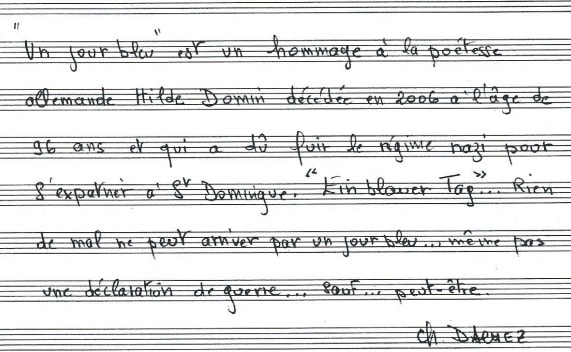 "Un jour bleu" est un hommage à la poétesse
allemande Hilde Domin décédée en 2006 à l'âge de
96 ans et qui a dû fuir le régime nazi pour
s'expatrier à St Domingue. "Ein blauer Tag"... Rien
de mal ne peut arriver par un jour bleu... même pas
une déclaration de guerre... sauf... peut-être.
Ch.